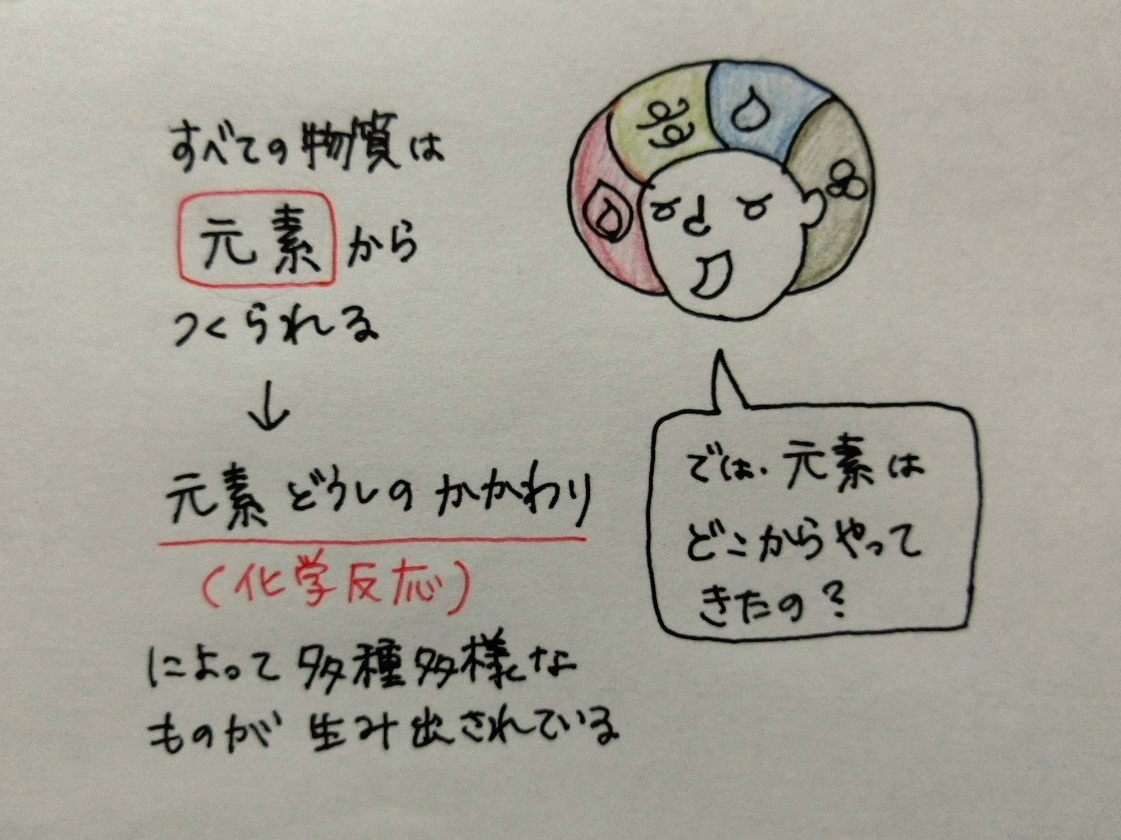 すべての物質は
元素から
つくられる
↓
元素どうしのかかわり
(化学反応)
によって多種多様な
ものが生み出されている
では、元素は
どこからやって
きたの?